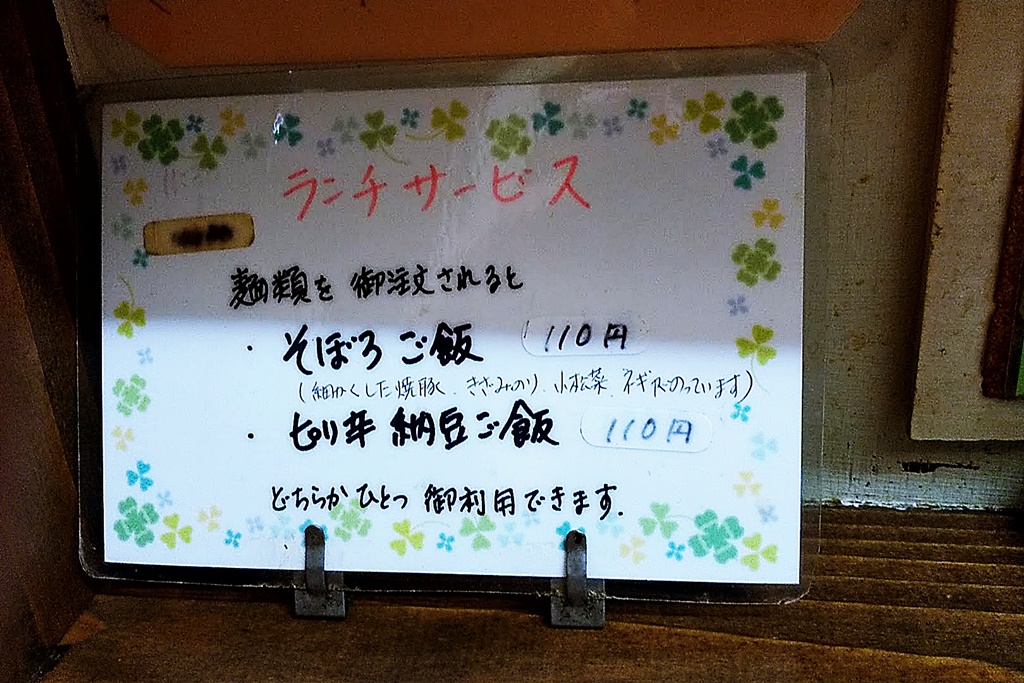 ランチサービス
麺類を御注文されると
・そぼろご飯 110円
(細かくした焼豚、きざみのり、小松菜、ネギがのっています)
・ピリ辛納豆ご飯 110円
どちらかひとつ御利用できます.